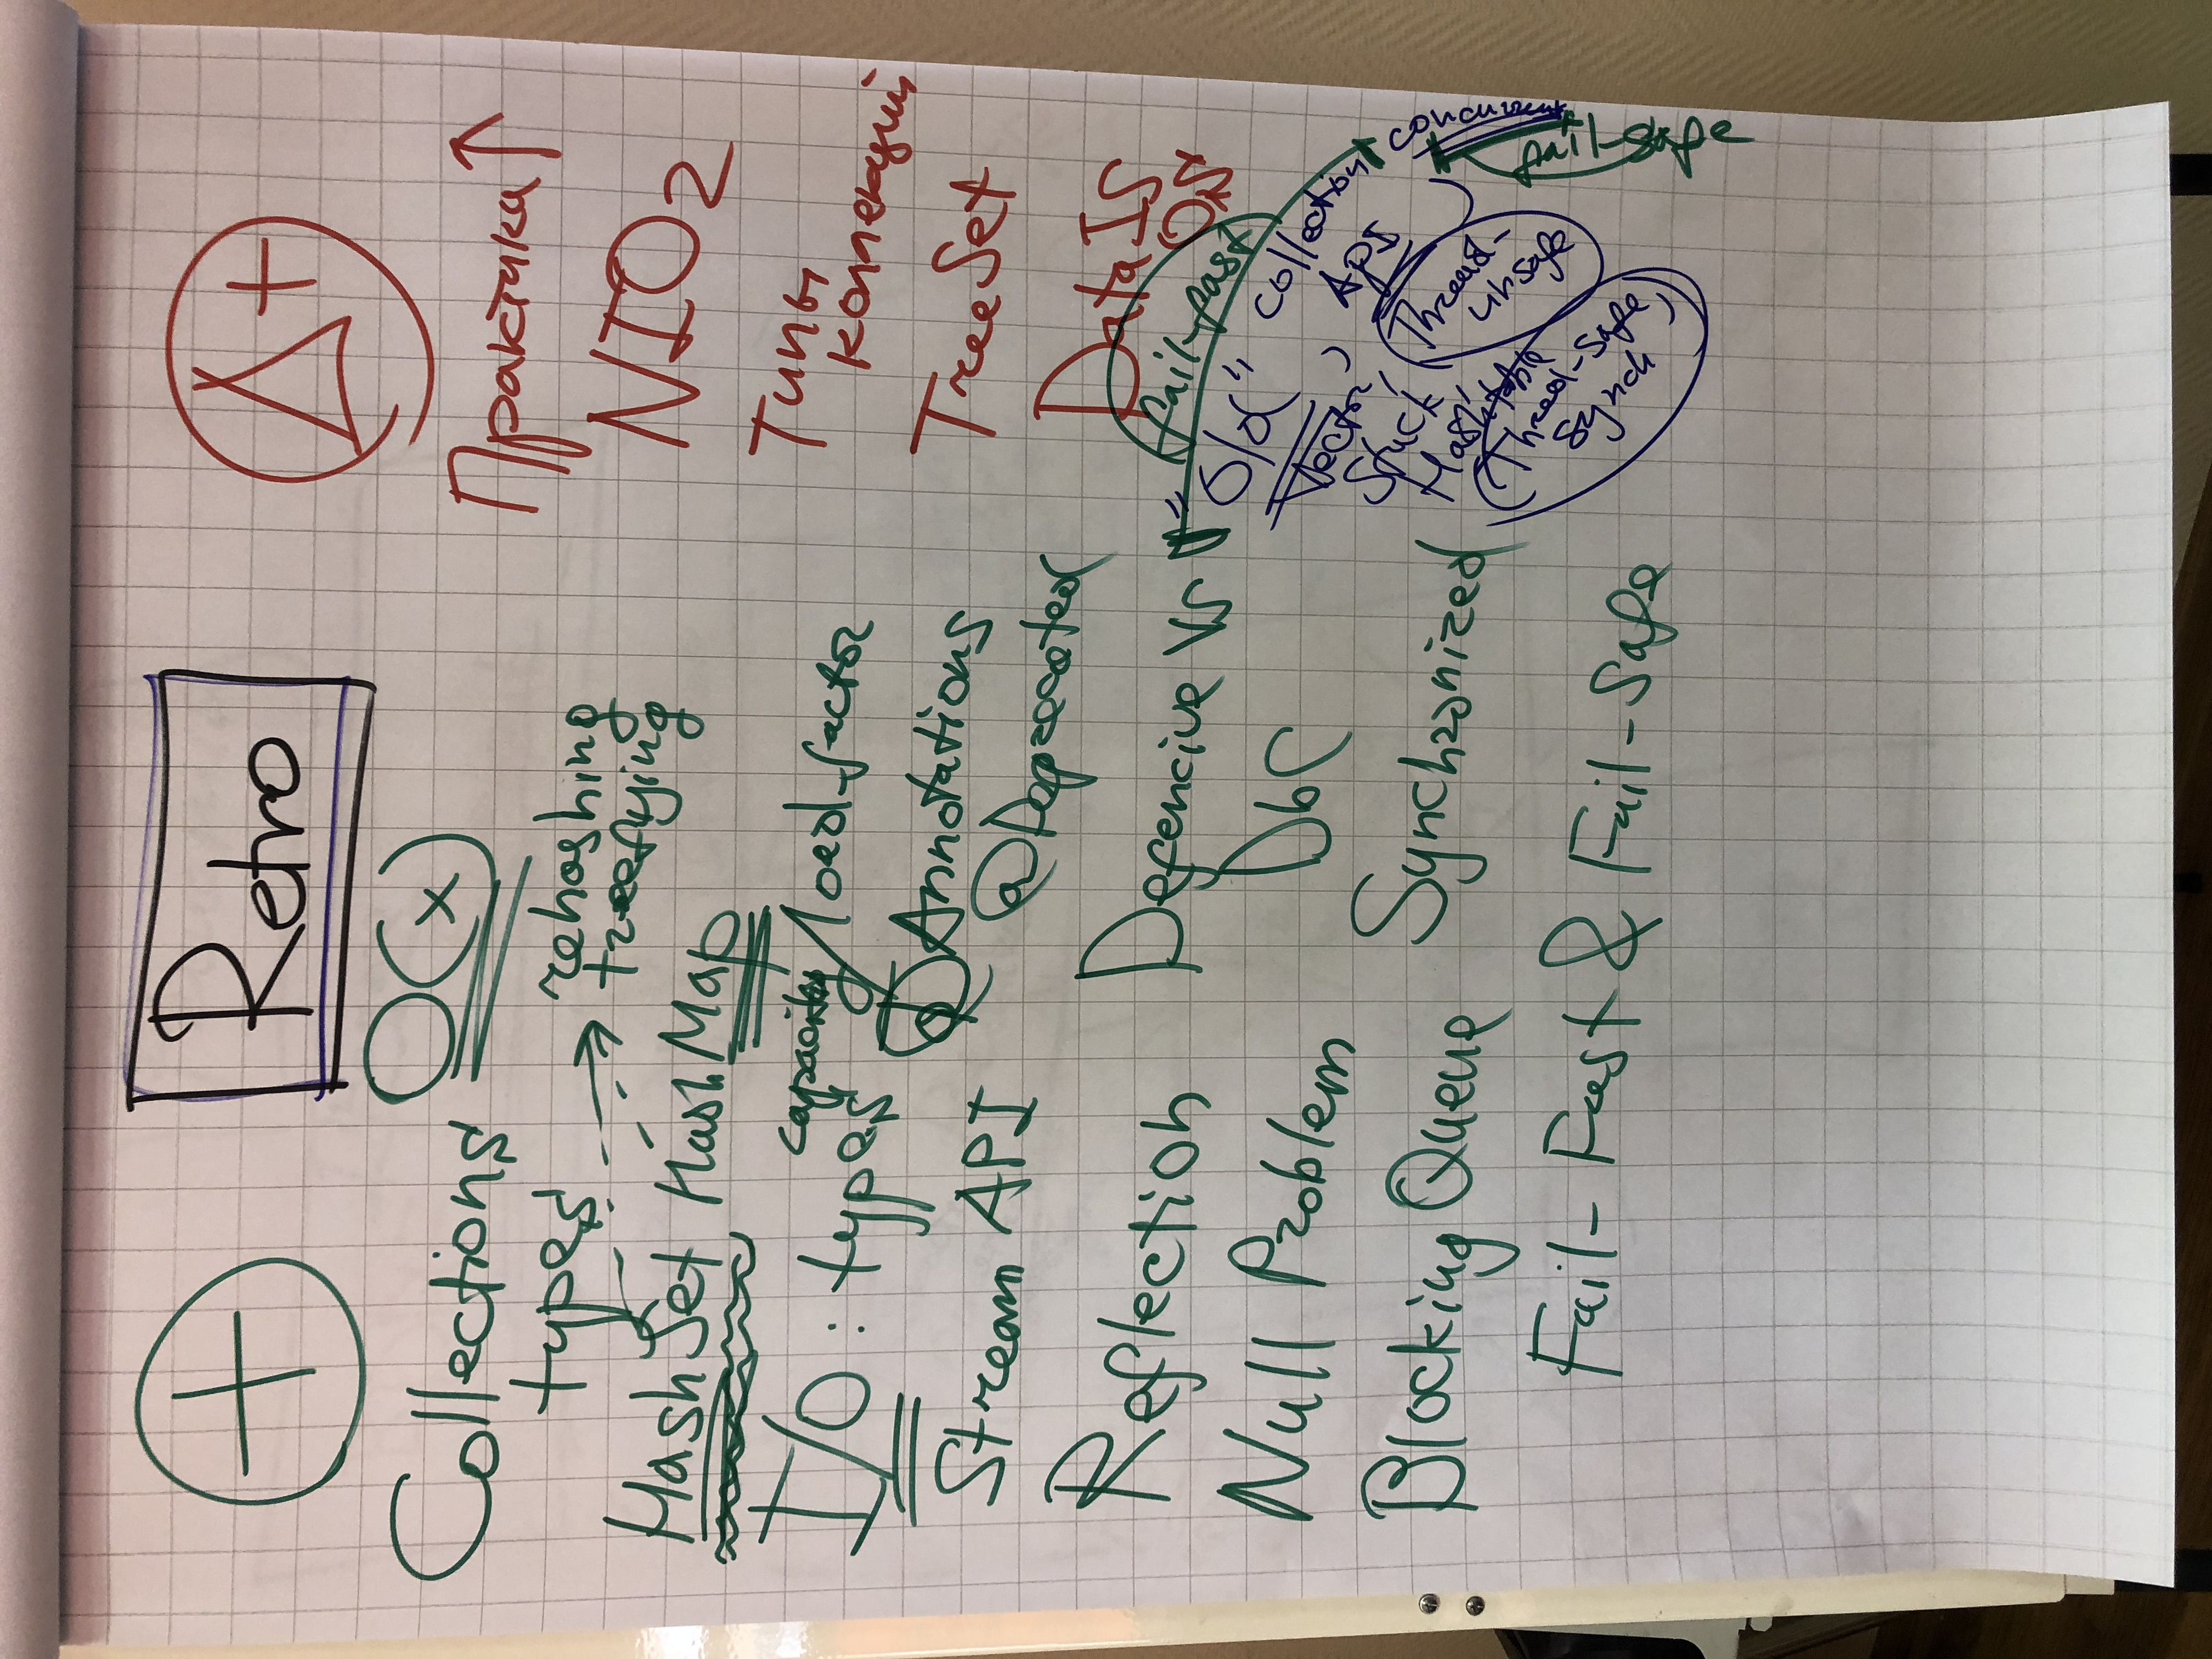 +
Retro
Δ+
Collections
types
O(x)
rehashing
treefying
HashSet HashMap
capacity/load-factor
I/O: types
@Annotations
@Deprecated
Stream API
Reflection
Defencive Vs
DbC
Null Problem
Blocking Queue
Synchronized
Fail-Fast & Fail-Safe
Практика ↑
NIO2
Типы
коллекций
TreeSet
DataIS
OS
fail-fast
"Old" collection
API
Vector,
Stack,
Hashtable
Thread-safe
Synch
Thread-
unsafe
concurrent
fail-safe